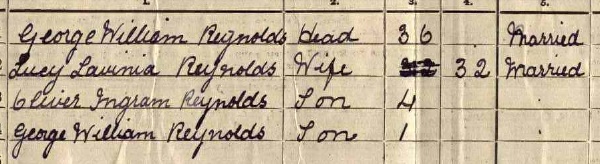 1. 2. 3. 4. 5.
George William Reynolds Head 36 Married
Lucy Lavinia Reynolds Wife 32 Married
Oliver Ingram Reynolds Son 4
George William Reynolds Son 1